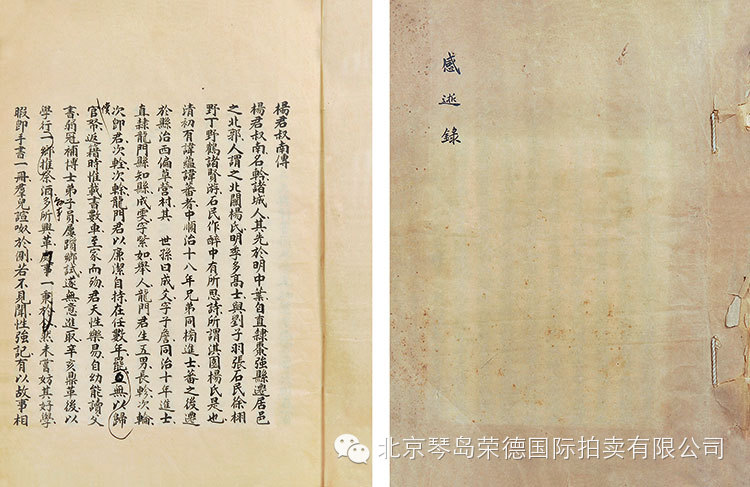 楊君叔南傳
楊君叔南名軡諸城人其先於明中葉自直隸棗強縣遷居邑
之北郭人謂之北關楊氏明季多高士與劉子羽張石民徐栩
野丁野鶴諸賢游石民作醉中有所思詩所謂淇園楊氏是也
清初有諱蘊諱蕃者中順治十八年兄弟同榜進士蕃之後遷
於縣治西偏草營村其 世孫曰成文字子詹同治十年進士
直隸龍門縣知縣成雯字繁如舉人龍門君生五男長軫次輪
次即君次輇次榦龍門君以廉潔自持在任數年罷無以歸
官帑返藉時惟載書數車至家而歿君天性樂易自幼能讀父
書弱冠補博士弟子員屢躓鄉試遂無意進取辛亥鼎革後以
學行一鄉推祭酒多所興革事一秉於然未嘗妨其好學
暇即手書一冊羣兒諠呶於側若不見聞性強記有以故事相
感逝錄
北京琴岛荣德国际拍卖有限公司